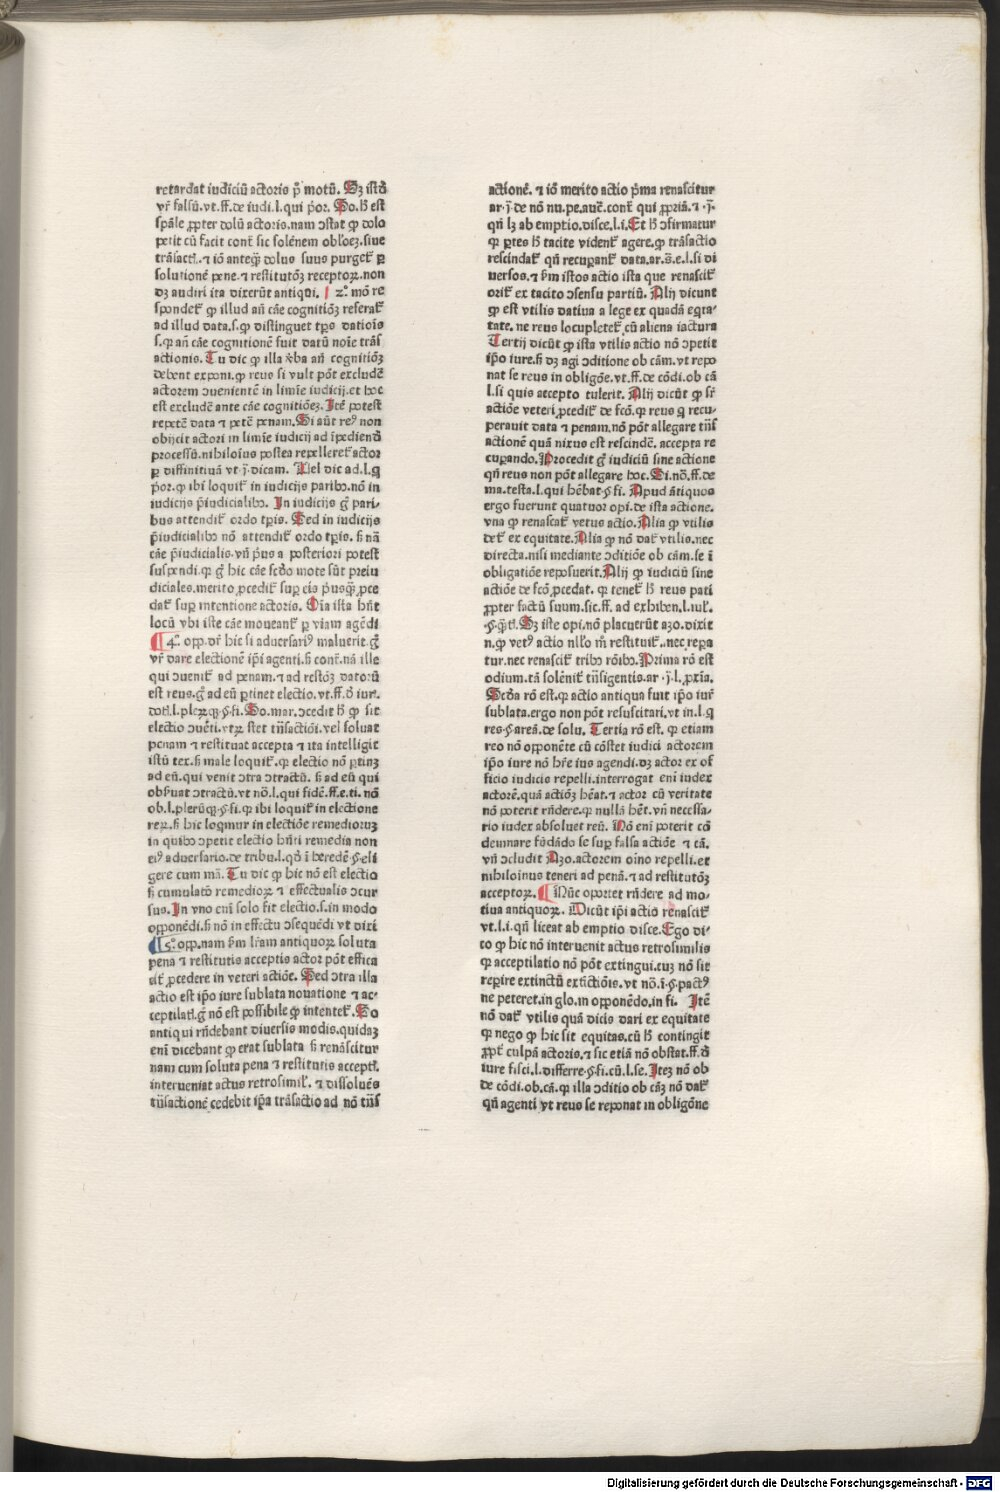 retardat iudiciū actoris p̄ motū. Sꝫ istđ
vr̄ falsū.vt.ff.de iudi.l.qui p̄or. So.h̄ est
spāle ꝓpter dolū actoris.nam ↄstat ꝙ dolo
petit cū facit cont̄ sic solēnem obl̓oeꝫ.siue
trāsact̄.⁊ iō anteqꝫ dolus suus purget̄ ꝑ
solutionē pene.⁊ restitutōꝫ receptoꝝ.non
dꝫ audiri ita dixerūt antiqui. 2º. mō re
spondet̄ ꝙ illud añ cāe cognitiōꝫ referat̄
ad illud data.s.ꝙ distinguet tꝑs dationis
s.ꝙ añ cāe cognitionē fuit datū noīe trās
actionis. Tu dic ꝙ illa v̄ba añ cognitiōꝫ
debent exponi.ꝙ reus si vult pōt excludē
actorem ↄuenientē in limīe iudicij.et hoc
est excludē ante cāe cognitiōeꝫ. Itē potest
repetē data ⁊ petē penam. Si aūt re⁹ non
obijcit actori in limīe iudicij ad īpediendū
processū.nihiloīus postea repelleret̄ actor
ꝑ diffinitiuā vt.j̄.dicam. Uel dic ad.l.q
p̄or.ꝙ ibi loquit̄ in iudicijs paribꝰ.nō in
iudicijs p̄iudicialibꝰ. In iudicijs g̊ pari-
bus attendit̄ ordo tꝑis. Sed in iudicijs
p̄iudicialibꝰ nō attendit̄ ordo tꝑis. s̄ nā
cāe p̄iudicialis.vñ p̄us a posteriori potest
suspendi.ꝙ g̊ hic cāe scđo mote sūt preiu
diciales.merito ꝓcedit̄ suꝑ eis p̄usqꝫ ꝓce
dat̄ suꝑ intentione actoris. Oīa ista hn̄t
locū vbi iste cāe moueant̄ ꝑ viam agēdi
¶ 4º. opp.vr̄ hic si aduersari⁹ maluerit.g̊
vr̄ dare electionē ip̄i agenti.s̄ cont̄.nā ille
qui ↄuenit̄ ad penam.⁊ ad restōꝫ datorū
est reus.g̊ ad eū ꝑtinet electio.vt.ff.đ iur.
dotl̓.l.pleꝝqꝫ.§.fi. So.mar.ↄcedit h̄ ꝙ sit
electio ↄuēti.vtꝝ stet trāsactiōi.vel soluat
penam ⁊ restituat accepta ⁊ ita intelligit
istū tex.s̄ male loquit̄.ꝙ electio nō ꝑtinꝫ
ad eū.qui venit ↄtra ↄtractū. s̄ ad eū qui
obẜuat ↄtractū.vt nō.l.qui fidē.ff.e.ti. nō
ob.l.plerūqꝫ.§.fi.ꝙ ibi loquit̄ in electione
reꝝ.s̄ hic loqmur in electiōe remediorum
in quibꝰ ↄpetit electio hn̄ti remedia non
ei⁹ aduersario.de tribu.l.qđ ī heredē.§.eli
gere cum mā. Tu dic ꝙ hic nō est electio
s̄ cumulatō remedioꝝ ⁊ effectualis ↄcur
sus. In vno eni solo fit electio.s.in modo
opponēdi.s̄ nō in effectu ↄsequēdi vt dixi
¶ 5º.opp.nam ẜm lr̄am antiquoꝝ soluta
pena ⁊ restitutis acceptis actor pōt effica
cit̄ ꝓcedere in veteri actiōe. Sed ↄtra illa
actio est ip̄o iure sublata nouatione ⁊ ac-
ceptilat̄.g̊ nō est possibile ꝙ intentet̄. So
antiqui rn̄debant diuersis modis.quidaꝫ
eni dicebant ꝙ erat sublata s̄ renāscitur
nam cum soluta pena ⁊ restitutis accept̄.
interueniat actus retrosimil̓. ⁊ dissoluēs
trāsactionē cedebit ip̄a trāsactio ad nō trās
actionē. ⁊ iō merito actio p̄ma renascitur
ar.j̄.de nō nu.pe.auc̄.cont̄ qui ꝓpriā.⁊.j̄.
qñ lꝫ ab emptio.disce.l.i. Et h̄ ↄfirmatur
ꝙ ꝑtes h̄ tacite vident̄ agere.ꝙ trāsactio
rescindat̄ qñ recuꝑant̄ data.ar.s̄.e.l.si di
uersos.⁊ ẜm istos actio ista que renascit̄
orit̄ ex tacito ↄsensu partiū. Alij dicunt
ꝙ est vtilis datiua a lege ex quadā eqta-
tate. ne reus locupletet̄ cū aliena iactura
Tertij dicūt ꝙ ista vtilis actio nō ↄpetit
ip̄o iure.s̄ dꝫ agi ↄditione ob cām.vt repo
nat se reus in obligōe.vt.ff.de cōdi.ob cā
l.si quis accepto tulerit. Alij dicūt ꝙ sr̄
actiōe veteri ꝓcedit̄ de fcō.ꝙ reus q recu-
perauit data ⁊ penam.nō pōt allegare trās
actionē quā nixus est rescindē. accepta re
cuꝑando. Procedit g̊ iudiciū sine actione
qñ reus non pōt allegare hoc. Si.nō.ff.de
ma.testa.l.qui hēbat.§.fi. Apud ātiquos
ergo fuerunt quatuor opi.de ista actione.
vna ꝙ renascat̄ vetus actio. Alia ꝙ vtilis
det̄ ex equitate. Alia ꝙ nō dat̄ vtilis.nec
directa.nisi mediante ↄditiōe ob cām.se ī
obligatiōe reposuerit. Alij ꝙ iudiciū sine
actiōe de fcō ꝓcedat. ꝙ tenet̄ h̄ reus pati
ꝓpter factū suum.sic.ff. ad exhiben.l.iul̓.
.§.q̄tl̓. Sꝫ iste opi.nō placuerūt azo.dixit
n.ꝙ vet⁹ actio nll̓o m̄ restituit̄..nec repa
tur.nec renascit̄ tribꝰ rōibꝰ. Prima rō est
odium.tā solēnit̄ trāsigentis.ar.j̄.l.ꝓxīa.
Scđa rō est.ꝙ actio antiqua fuit ip̄o iur̄
sublata.ergo non pōt resuscitari.vt in.l.q
res.§.areā.de solu. Tertia rō est. ꝙ etiam
reo nō opponēte cū cōstet iudici actorem
ip̄o iure nō hr̄e ius agendi.dꝫ actor ex of
ficio iudicis repelli.interrogat eni iudex
actorē.quā actiōꝫ hēat.⁊ actor cū veritate
nō poterit rn̄dere.ꝙ nullā hēt.vñ necessa-
rio iudex absoluet reū. Nō eni poterit cō
demnare fūdādo se suꝑ falsa actiōe ⁊ cā.
vñ ↄcludit Azo.actorem oīno repelli.et
nihiloīnus teneri ad penā.⁊ ad restitutōꝫ
acceptoꝝ. ¶ Nūc oportet rn̄dere ad mo-
tiua antiquoꝝ. Dicūt ip̄i actio renascit̄
vt.l.i.qñ liceat ab emptio disce. Ego di-
co ꝙ hic nō interuenit actus retrosimilis
ꝙ acceptilatio nō pōt extingui.cuꝫ nō sit
reꝑire extinctū extīctiōis.vt nō.ī.§.pact⁹
ne peteret.in glo.in opponēdo.in fi. Itē
nō dat̄ vtilis quā dicis dari ex equitate
ꝙ nego ꝙ hic sit equitas.cū h̄ contingit
ꝓpt̄ culpā actoris.⁊ sic etiā nō obstat.ff.đ
iure fisci.l.differre.§.fi.cū.l.se. Iteꝫ nō ob
de cōdi.ob.cā.ꝙ illa ↄditio ob cāꝫ nō dat̄
qñ agenti vt reus se reponat in obligōne
Digitalisierung gefördert durch die Deutsche Forschungsgemeinschaft - DFG